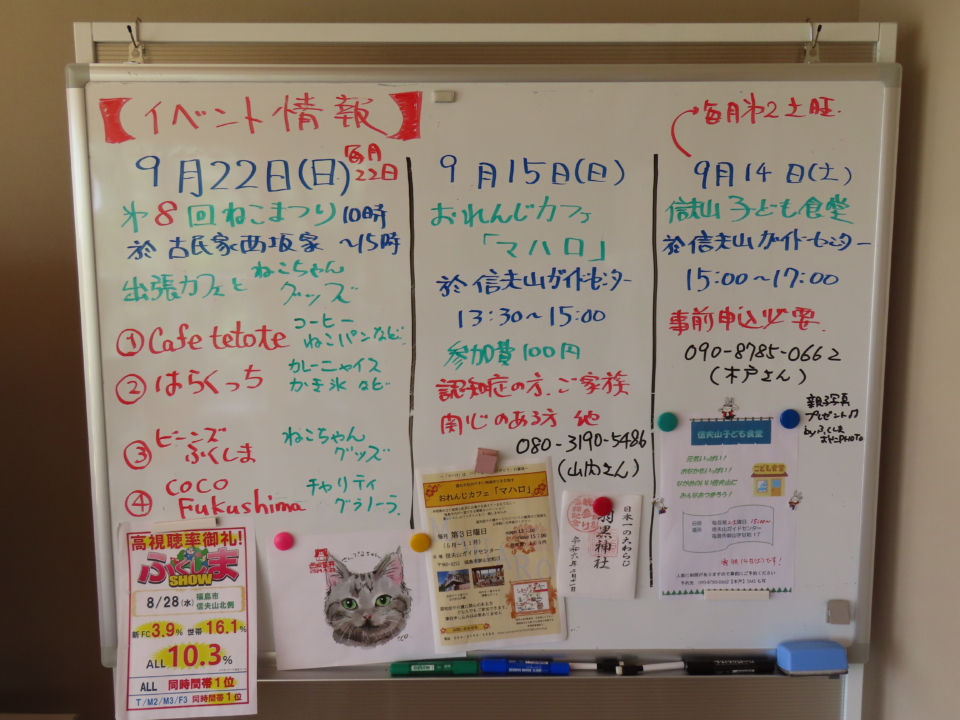 【イベント情報】
9月22日(日)
毎月
22日
第8回ねこまつり 10時
於 古民家西坂家 ～15時
出張カフェと ねこちゃん
グッズ
① Cafe tetote コーヒー
ねこパンなど
② はらくっち カレーニャイス
かき氷 など
③ ビーンズ
ふくしま ねこちゃん
グッズ
④ COCO
Fukushima チャリティ
グラノーラ
9月15日(日)
おれんじカフェ
「マハロ」
於 信夫山ガイドセンター
13:30～15:00
参加費100円
認知症の方、ご家族
関心のある方 他
080-3190-5486
(山内さん)
毎月第2土曜
9月14日(土)
信夫山子ども食堂
於 信夫山ガイドセンター
15:00～17:00
事前申込必要
090-8785-0662
(木戸さん)
親子写真
プレゼント
byふくしま
高視聴率御礼!
ふくしま
SHOW
8/28(水) 福島市
信夫山北側
新FC3.9% 世帯16.1%
ALL 10.3%
ALL 同時間帯1位
T/M2/M3/F3 同時間帯1位
おれんじカフェ「マハロ」
毎月 第3日曜日
信夫山ガイドセンター
日本一の大わらじ
羽黒神社
信夫山子ども食堂
元気いっぱい!
みんなあつまろう!
こども食堂
信夫山ガイドセンター